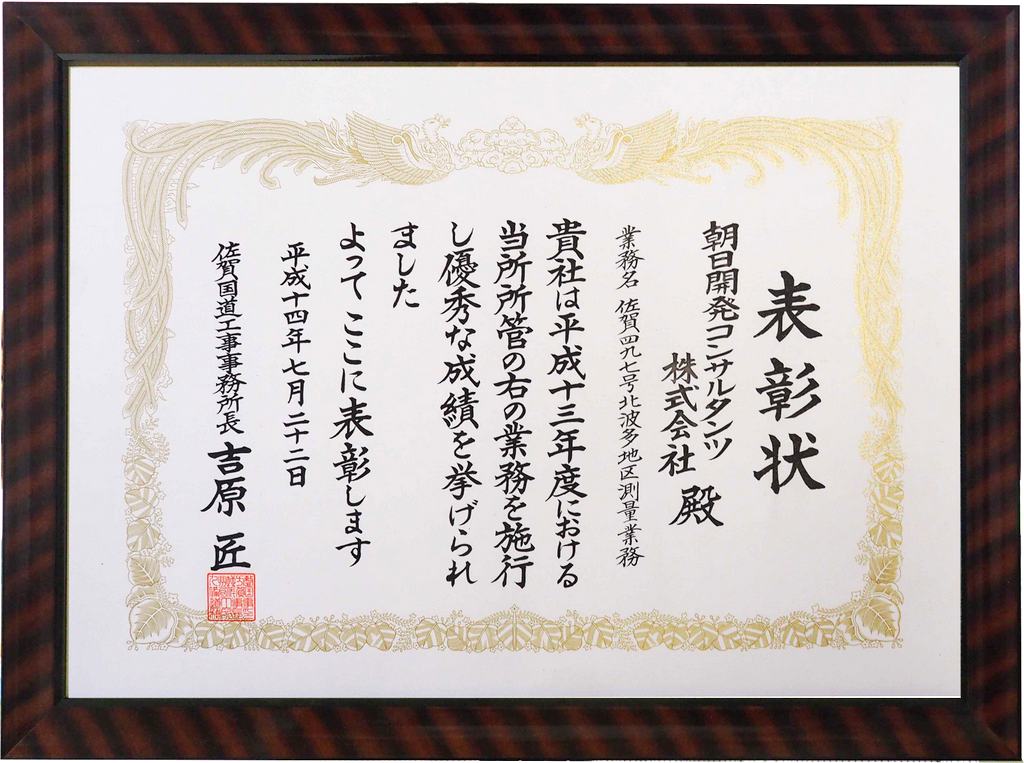 表彰状
朝日開発コンサルタンツ
株式会社 殿
業務名 佐賀四九七号北波多地区測量業務
貴社は平成十三年度における
当所所管の右の業務を施行
し優秀な成績を挙げられ
ました
よってここに表彰します
平成十四年七月二十二日
佐賀国道工事事務所長 吉原 匠